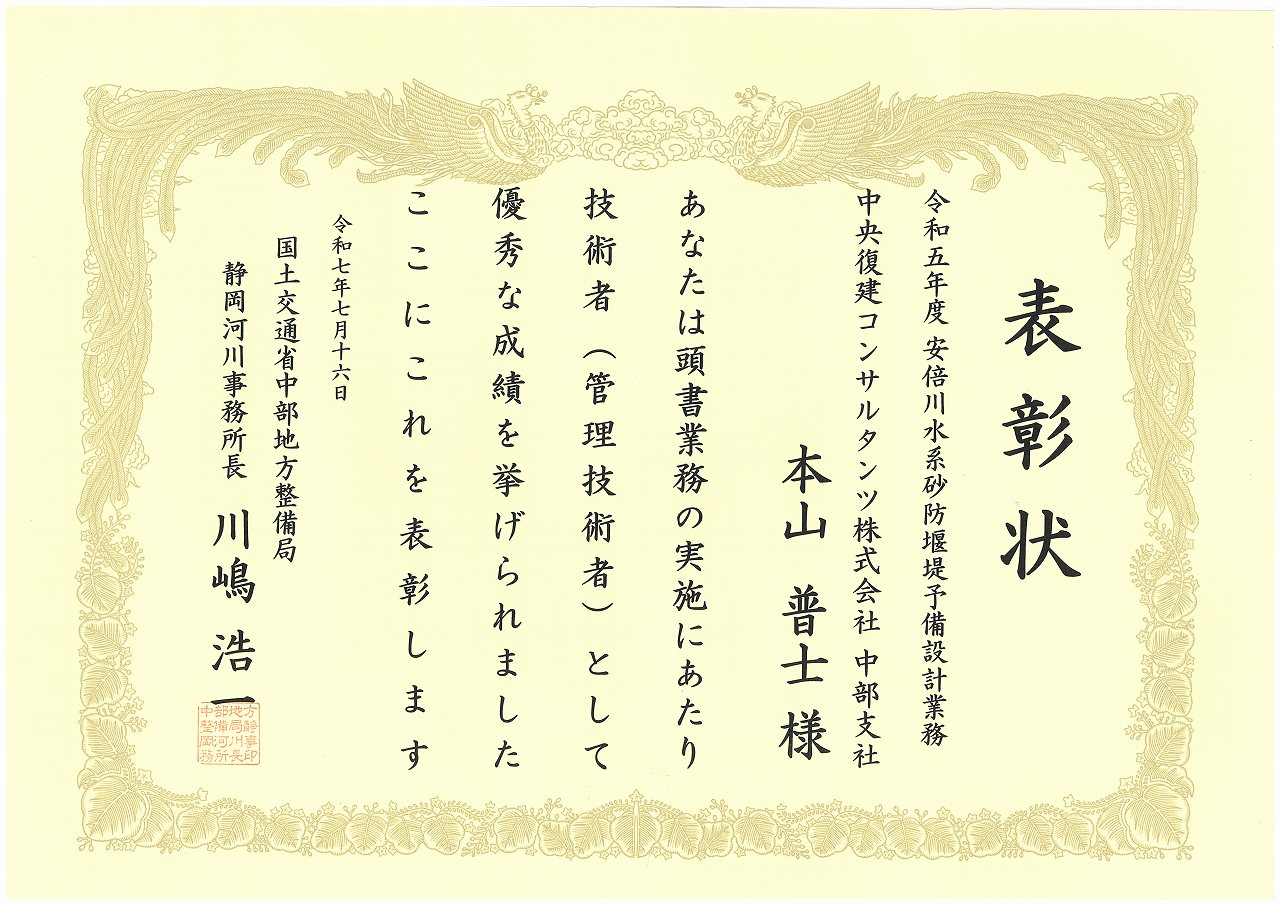 表彰状
令和五年度 安倍川水系砂防堰堤予備設計業務
中央復建コンサルタンツ株式会社 中部支社
本山 普士 様
あなたは頭書業務の実施にあたり
技術者（管理技術者）として
優秀な成績を挙げられました
ここにこれを表彰します
令和七年七月十六日
国土交通省中部地方整備局
静岡河川事務所長 川嶋 浩一
方静事印
地局川長
部備河所
中整岡務